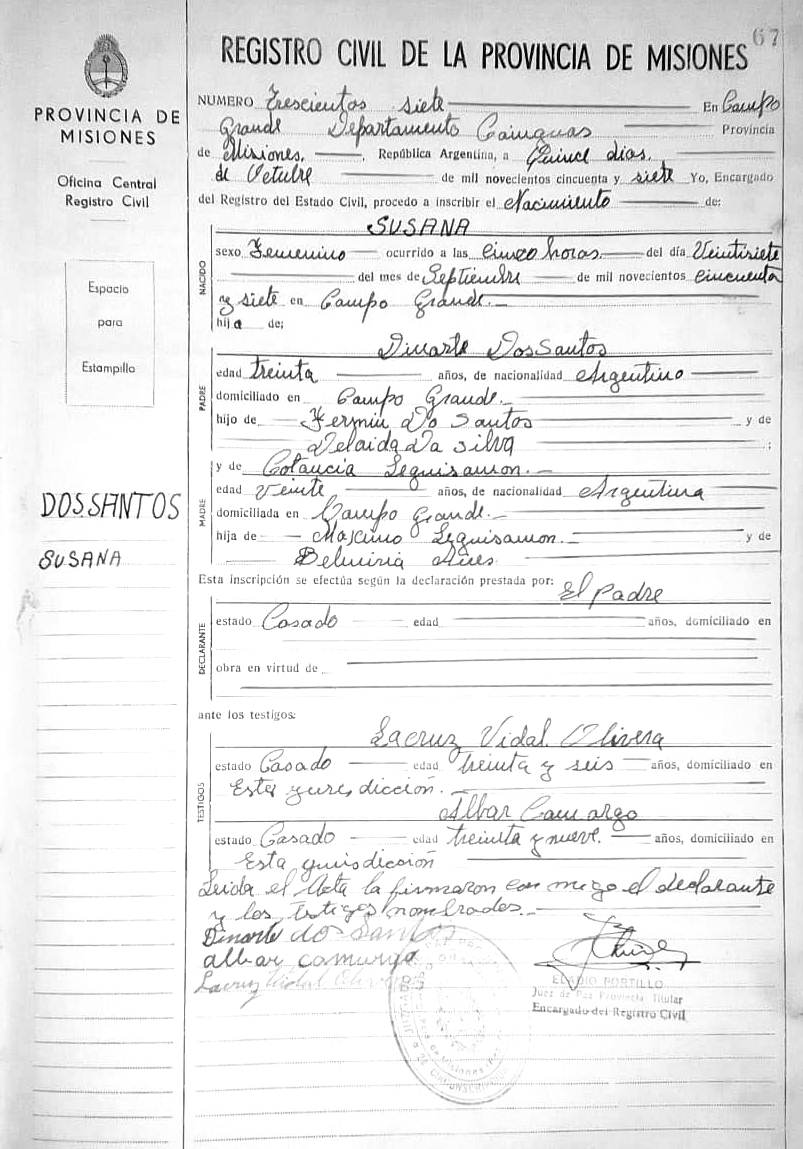 67
REGISTRO CIVIL DE LA PROVINCIA DE MISIONES
PROVINCIA DE
MISIONES
Oficina Central
Registro Civil
Espacio
para
Estampilla
DOS SANTOS
SUSANA
NUMERO Trescientos siete En Campo
Grande Departamento Cainguas Provincia
de Misiones, República Argentina, a Quince dias
de Octubre de mil novecientos cincuenta y siete Yo, Encargado
del Registro del Estado Civil, procedo a inscribir el Nacimiento de:
SUSANA
NACIDO
sexo Femenino ocurrido a las cinco horas del día Veintisiete
del mes de Septiembre de mil novecientos cincuenta
y siete en Campo Grande.
hija de;
PADRE
Duarte DosSantos
edad treinta años, de nacionalidad Argentino
domiciliado en Campo Grande.
hijo de Fermin Do Santos y de
Delaida Da Silva ;
y de Cotaucia Leguisamon.
MADRE
edad Veinte años, de nacionalidad Argentina
domiciliada en Campo Grande.
hija de Maximo Leguisamon. y de
Belmiria
Esta inscripción se efectúa según la declaración prestada por: El Padre
DECLARANTE
estado Casado edad años, domiciliado en
obra en virtud de
ante los testigos:
TESTIGOS
Lacruz Vidal Olivera
estado Casado edad treinta y seis años, domiciliado en
Esta jurisdicción.
Albar Camargo
estado Casado edad treinta y nueve. años, domiciliado en
Esta jurisdicción
Leida el Acta la firmaron con migo el declarante
y los testigos nombrados.
Duarte do Santos
albar camargo
Lacruz Vidal Olivera
ELADIO PORTILLO
Juez de Paz Provincia Titular
Encargado del Registro Civil